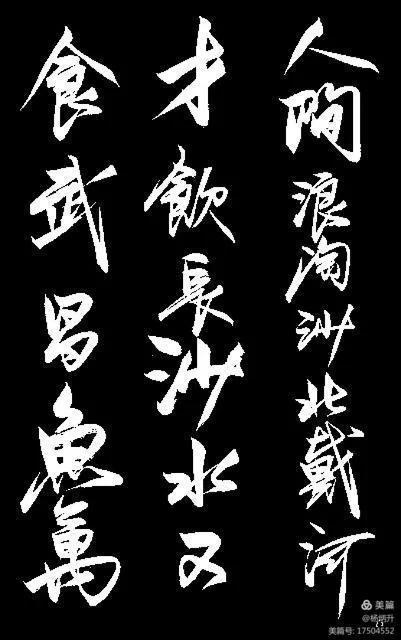 人間浪淘沙北戴河
才飲長沙水又
食武昌魚萬
美篇
@杨炳升
美篇号: 17504552